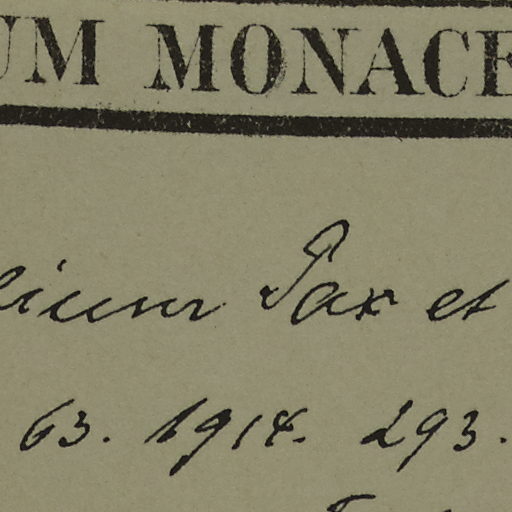 UM MONACE
lium Pax et
63. 1914. 293.